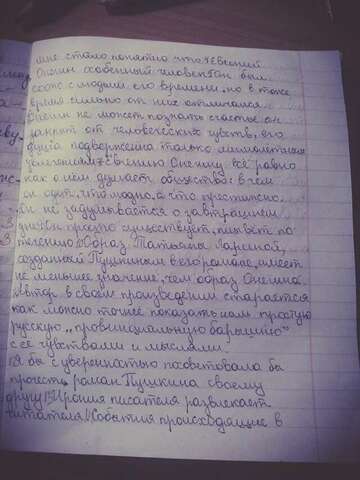 мне стало понятно что Евгений
Онегин особенный человек Он был
схож с людьми его времени, но в тоже
время сильно от них отличался
Онегин не может познать счастье он
далек от человеческих чувств, его
душа подвержена только мимолетным
увлечениям Евгению Онегину всё равно
как о нём думает общество: в чём
он одет, что модно, а что престижно.
Он не задумывается о завтрашнем
дне Он просто существует, плывёт по
течению Образ Татьяны Лариной,
созданный Пушкиным в его романе, имеет
не меньшее значение, чем образ Онегина
Автор в своем произведении старается
как можно точнее показать нам простую
русскую „провинциальную барышню"
с ее чувствами и мыслями.
Я бы с уверенностью посоветовала бы
прочесть роман Пушкина своему
другу Ирония писателя развлекает
читателя События происходящие в